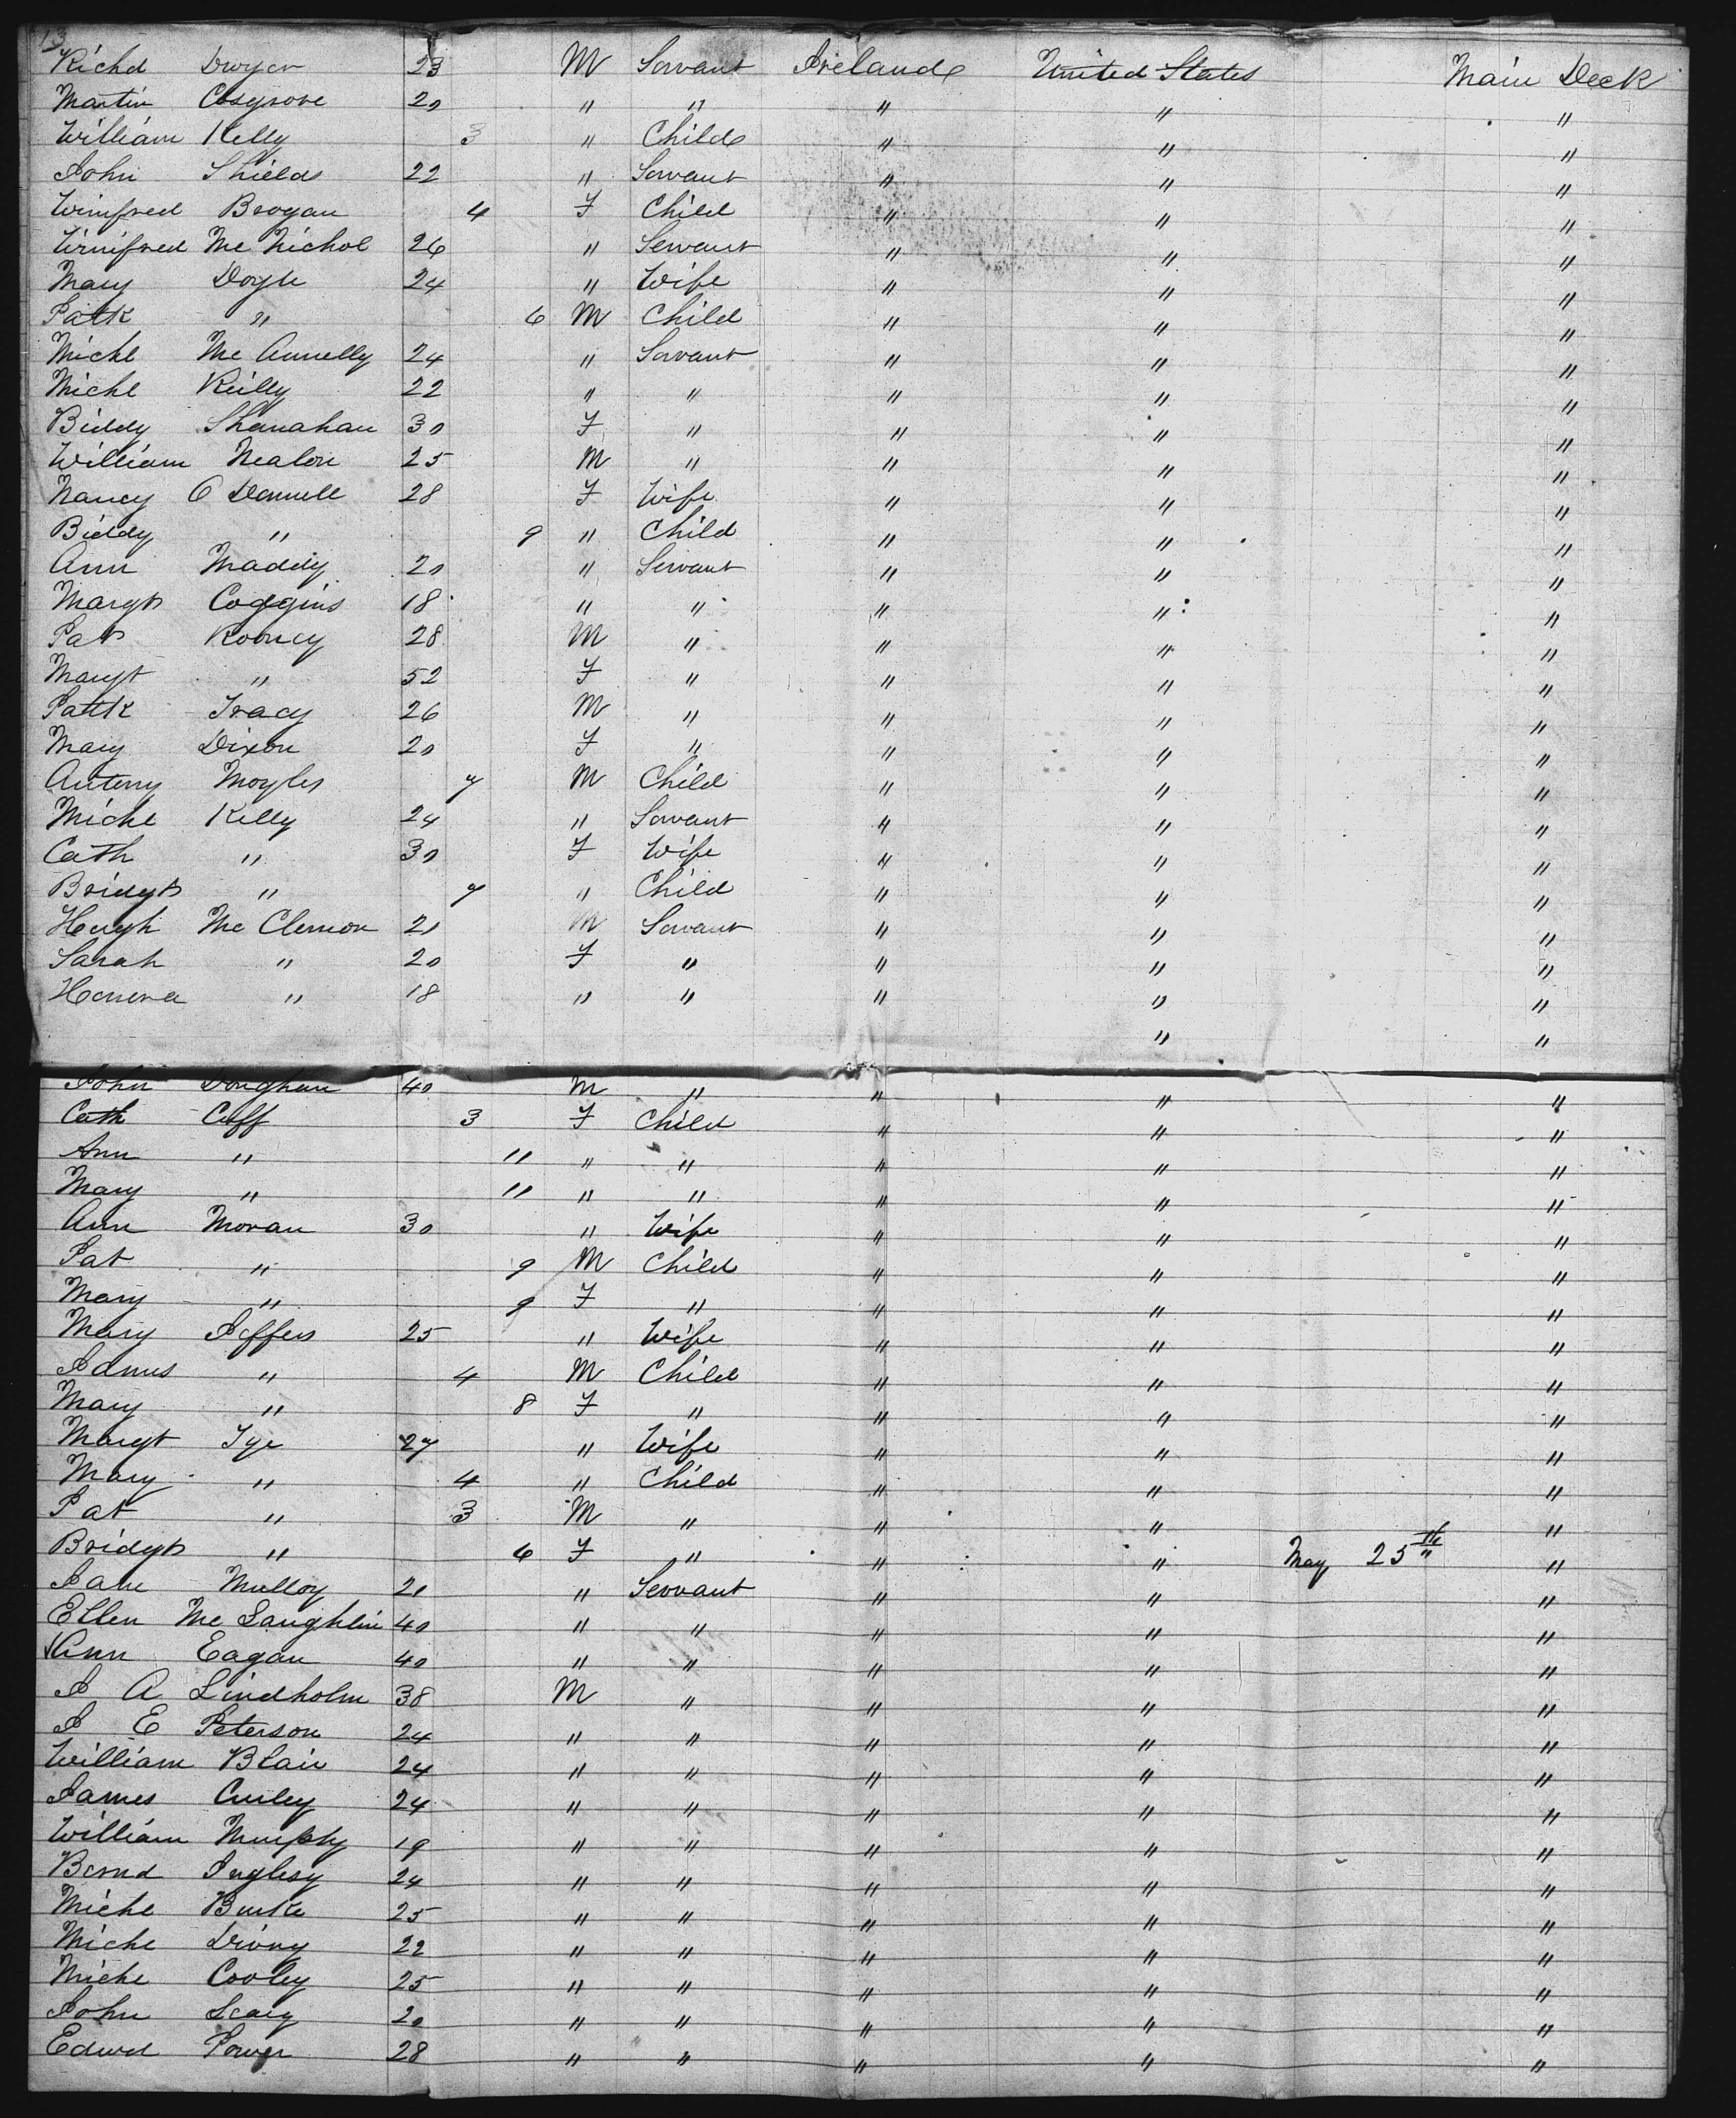 13
Richd Dwyer 23 M Servant Ireland United States Main Deck
Martin Cosgrove 20 " " " " "
William Kelly 3 " Child " " "
John Shields 22 " Servant " " "
Winifred Brogan 4 F Child " " "
Winifred Mc Nichol 26 " Servant " " "
Mary Doyle 24 " Wife " " "
Patk " 6 M Child " " "
Michl Mc Annelly 24 " Servant " " "
Michl Reilly 22 " " " " "
Biddy Shanahan 30 F " " " "
William Nealon 25 M " " " "
Nancy O Donnell 28 F Wife " " "
Biddy " 9 " Child " " "
Ann Maddy 20 " Servant " " "
Margt Coggins 18 " " " " "
Pat Rooney 28 M " " " "
Margt " 52 F " " " "
Patk Tracy 26 M " " " "
Mary Dixon 20 F " " " "
Anteny Moyles 7 M Child " " "
Michl Kelly 24 " Servant " " "
Cath " 30 F Wife " " "
Bridgt " 7 " Child " " "
Hugh Mc Clernon 21 M Servant " " "
Sarah " 20 F " " " "
Honora " 18 " " " " "
" "
John Donghan 40 M " " " "
Cath Cuff 3 F Child " " "
Ann " 11 " " " " "
Mary " 11 " " " " "
Ann Moran 30 " Wife " " "
Pat " 9 M Child " " "
Mary " 9 F " " " "
Mary Jeffers 25 " Wife " " "
James " 4 M Child " " "
Mary " 8 F " " " "
Margt Tye 27 " Wife " " "
Mary " 4 " Child " " "
Pat " 3 M " " " "
Bridgt " 6 F " " " May 25th "
Jane Mulloy 21 " Servant " " "
Ellen Mc Laughlin 40 " " " " "
Ann Eagan 40 " " " " "
J A Lindholm 38 M " " " "
J E Peterson 24 " " " " "
William Blair 24 " " " " "
James Curley 24 " " " " "
William Murphy 19 " " " " "
Bernd Inglesy 24 " " " " "
Michl Burke 25 " " " " "
Michl Divny 22 " " " " "
Michl Cooley 25 " " " " "
John 20 " " " " "
Edwd Power 28 " " " " "